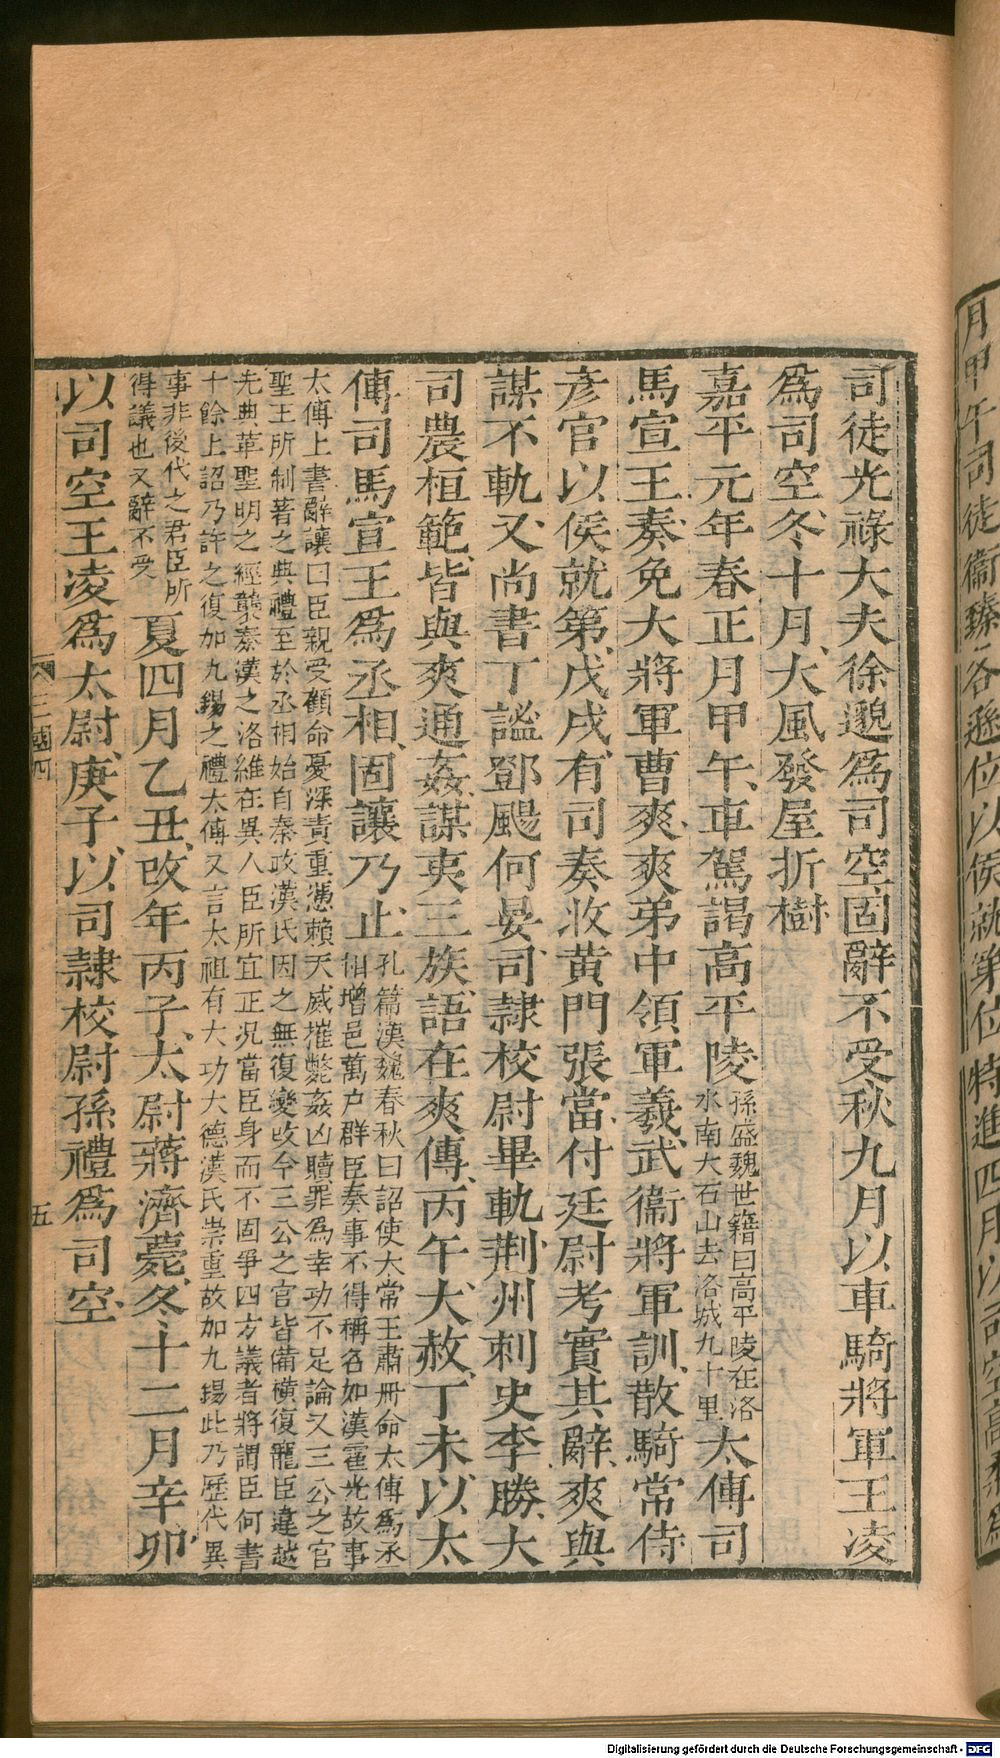 月甲午司徒衞臻各遜位以侯就第位特進四月以司空高柔爲
司徒光祿大夫徐邈爲司空固辭不受秋九月以車騎將軍王凌
爲司空冬十月大風發屋折樹
嘉平元年春正月甲午車駕謁高平陵
孫盛魏世籍曰高平陵在洛
水南大石山去洛城九十里
太傅司
馬宣王奏免大將軍曹爽爽弟中領軍羲武衞將軍訓散騎常侍
彥官以侯就第戊戌有司奏收黃門張當付廷尉考實其辭爽與
謀不軌又尚書丁謐鄧颺何晏司隸校尉畢軌荆州刺史李勝大
司農桓範皆與爽通姦謀夷三族語在爽傳丙午大赦丁未以太
傅司馬宣王爲丞相固讓乃止
孔篇漢魏春秋曰詔使大常王肅冊命太傅爲丞
相增邑萬户群臣奏事不得稱名如漢霍光故事
太傅上書辭讓曰臣親受顧命憂深責重憑賴天威摧斃姦凶贖罪爲幸功不足論又三公之官
聖王所制著之典禮至於丞相始自秦政漢氏因之無復變改今三公之官皆備橫復寵臣違越
先典革聖明之經襲秦漢之洛雖在異人臣所宜正況當臣身而不固爭四方議者將謂臣何書
十餘上詔乃許之復加九錫之禮太傅又言太祖有大功大德漢氏崇重故加九錫此乃歷代異
事非後代之君臣所
得議也又辭不受
夏四月乙丑改年丙子太尉蔣濟薨冬十二月辛卯
以司空王凌爲太尉庚子以司隸校尉孫禮爲司空
三國四
五
Digitalisierung gefördert durch die Deutsche Forschungsgemeinschaft - DFG